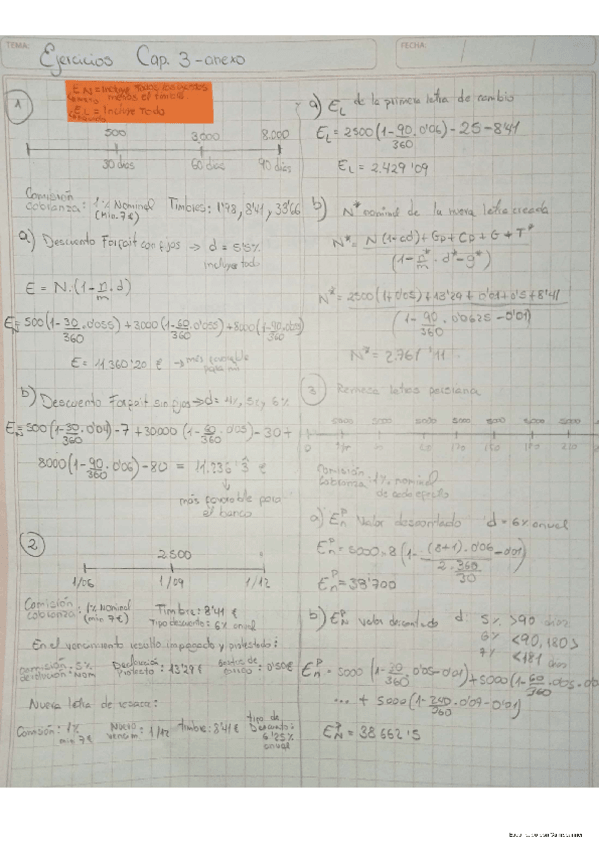 TEMA:
Ejercicios Cap. 3 - anexo
FECHA:
EN = Incluye todos los gastos
menos el timbre
EL = Incluye Todo
1
500 3.000 8.000
30 días 60 días 90 días
Comisión cobranza: 1% Nominal (Min. 7€) Timbres: 1'98, 8'41, 33'66
a) Descuento Forfait con fijos → d = 5'5%
incluye todo
E = N·(1 - n/m · d)
EN = 500(1 - 30/360 · 0'055) + 3000(1 - 60/360 · 0'055) + 8000(1 - 90/360 · 0'055)
E = 11.360'20 € → más favorable para mí
b) Descuento Forfait sin fijos → d = 4%, 5%, 6%
EN = 500(1 - 30/360 · 0'04) - 7 + 30000(1 - 60/360 · 0'05) - 30 +
8000(1 - 90/360 · 0'06) - 80 = 11.236'3 €
más favorable para el banco
2
2.500
1/06 1/09 1/12
Comisión cobranza: 1% Nominal (min 7€) Timbre: 8'41 €
Tipo descuento: 6% anual
En el vencimiento resulta impagado y protestado:
comisión devolución: 5% Nom Declaración Protesto: 13'29 € Gastos de correo: 0'50€
Nueva letra de resaca:
Comisión: 1% min 7€ Nuevo vencim: 1/12 Timbre: 8'41 € tipo de Descuento: 6'25% anual
a) EL de la primera letra de cambio
EL = 2500(1 - 90/360 · 0'06) - 25 - 8'41
EL = 2.429'09
b) N* nominal de la nueva letra creada
N* = N(1+cd) + Gp + Cp + G + T* / (1 - n*/m · d* - g*)
N* = 2500(1+0'05) + 13'29 + 0'01 + 0'5 + 8'41 / (1 - 90/360 · 0'0625 - 0'01)
N* = 2.761'11
3 Remesa letras
Comisión cobranza: 1% nominal
de cada efecto
a) EnP Valor descontado d = 6% anual
EnP = 5000·8(1 - (8+1)·0'06 / 2·360/30 - 0'01)
EnP = 38'700
b) EnP valor descontado d: 5% >90 días
6% <90,180>
7% <181 días
EnP = 5000(1 - 30/360 · 0'05 - 0'01) + 5000(1 - 60/360 · 0'05 - 0'0
... + 5000(1 - 240/360 · 0'07 - 0'01)
ENP = 38662'5